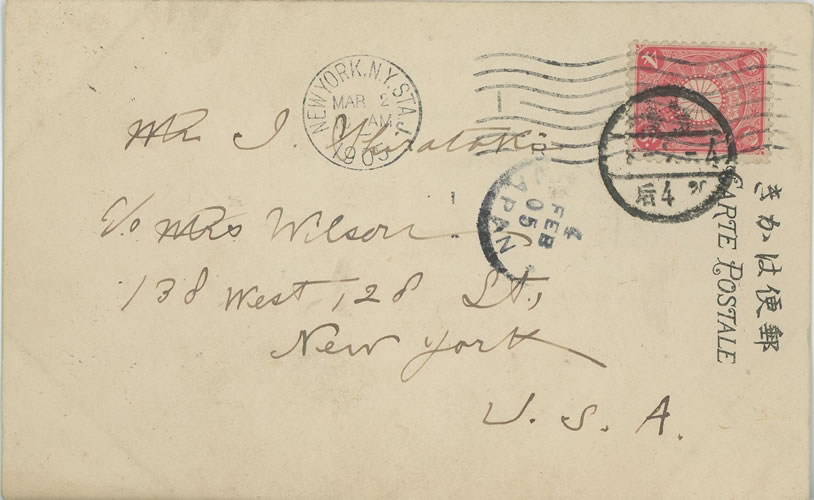 NEW YORK, N.Y. STA. J.
MAR 2
AM
1905
Mr. I. Shiratoki
c/o Mrs Wilson
138 West 128 St,
New York
U. S. A.
JAPAN
4
FEB
05
4
后4
CARTE POSTALE
きかは便郵